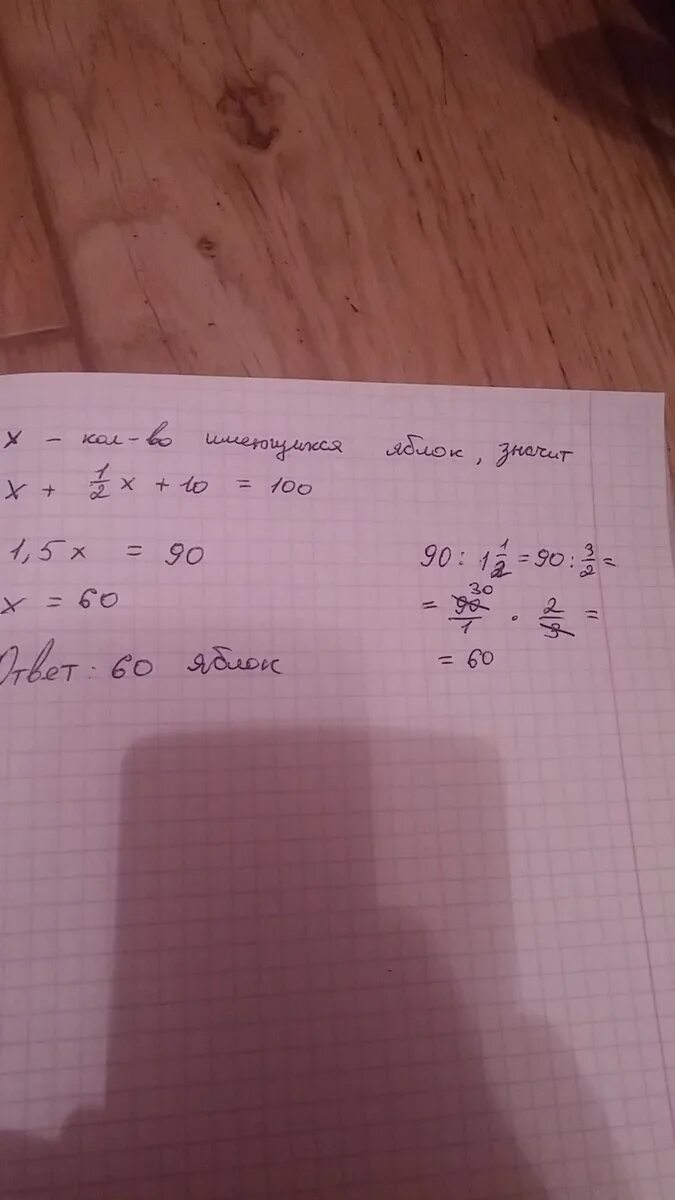 x - кол-во имеющихся яблок, значит
x + 1/2 x + 10 = 100
1,5x = 90
x = 60
Ответ: 60 яблок
90 : 1 1/2 = 90 : 3/2 =
30
= 90/1 · 2/3 =
= 60